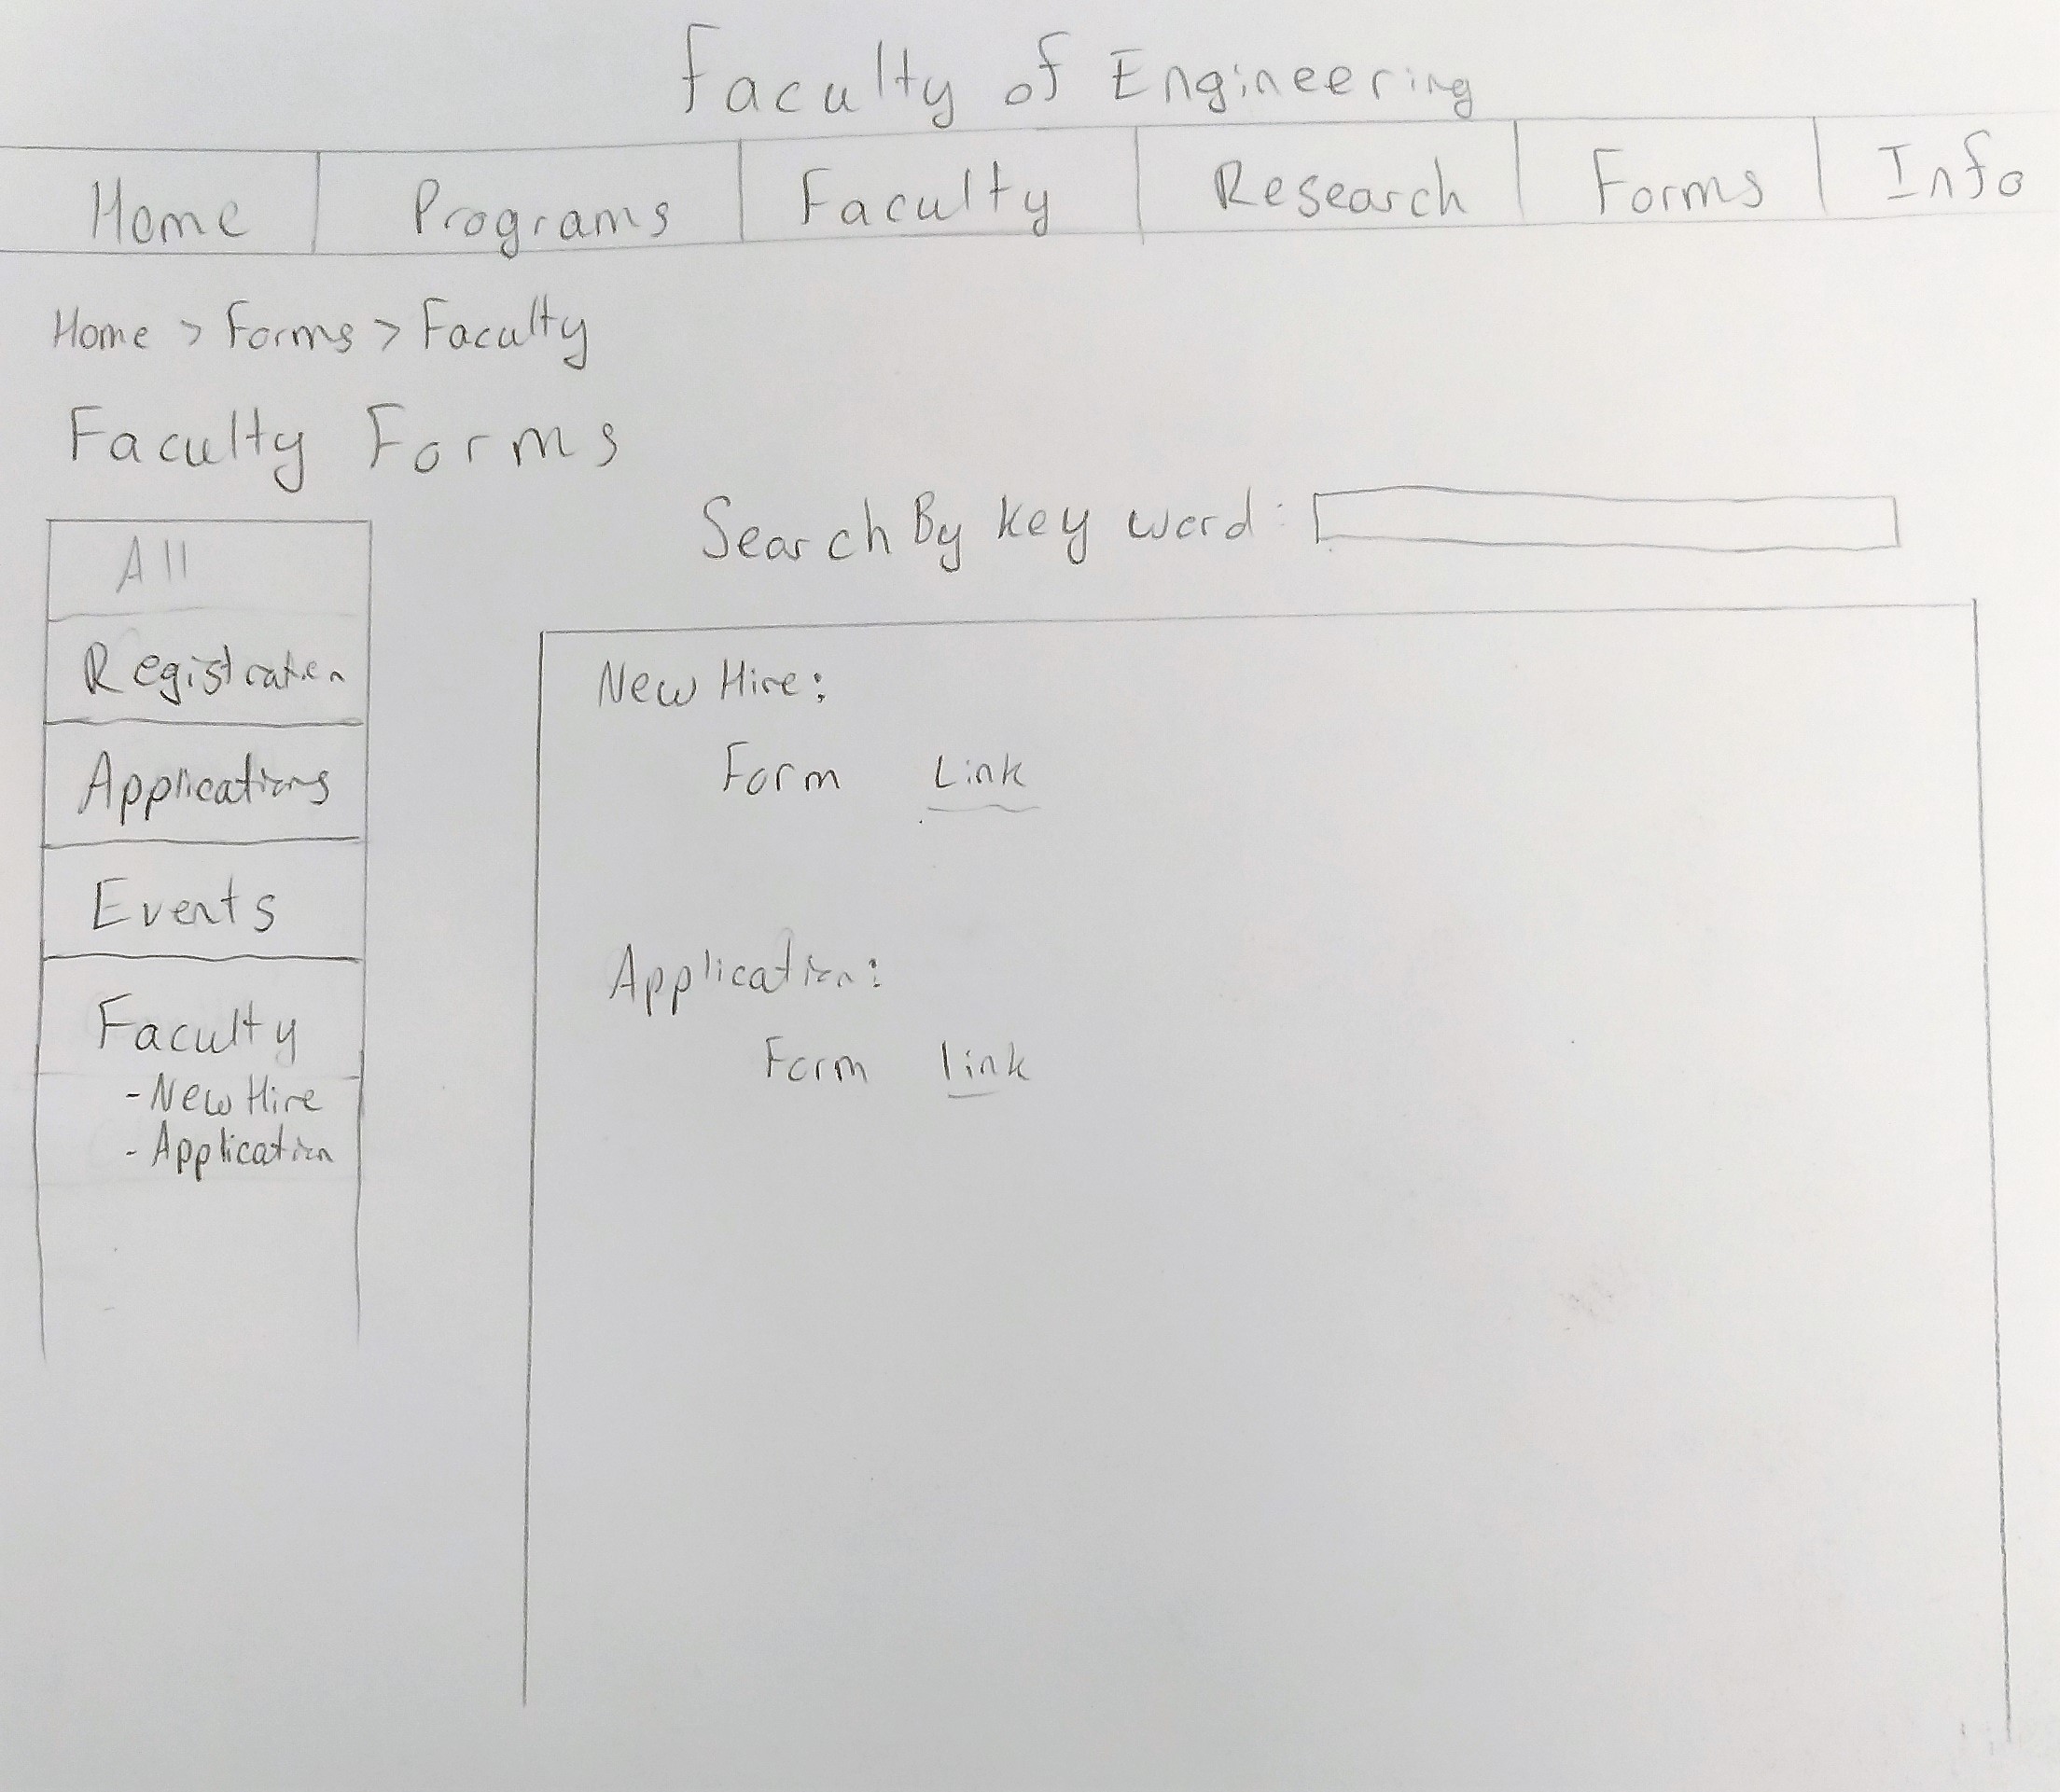 Faculty of Engineering
Home Programs Faculty Research Forms Info
Home > Forms > Faculty
Faculty Forms
Search By key word:
All
Registration
Applications
Events
Faculty
- New Hire
- Application
New Hire:
Form Link
Application:
Form link